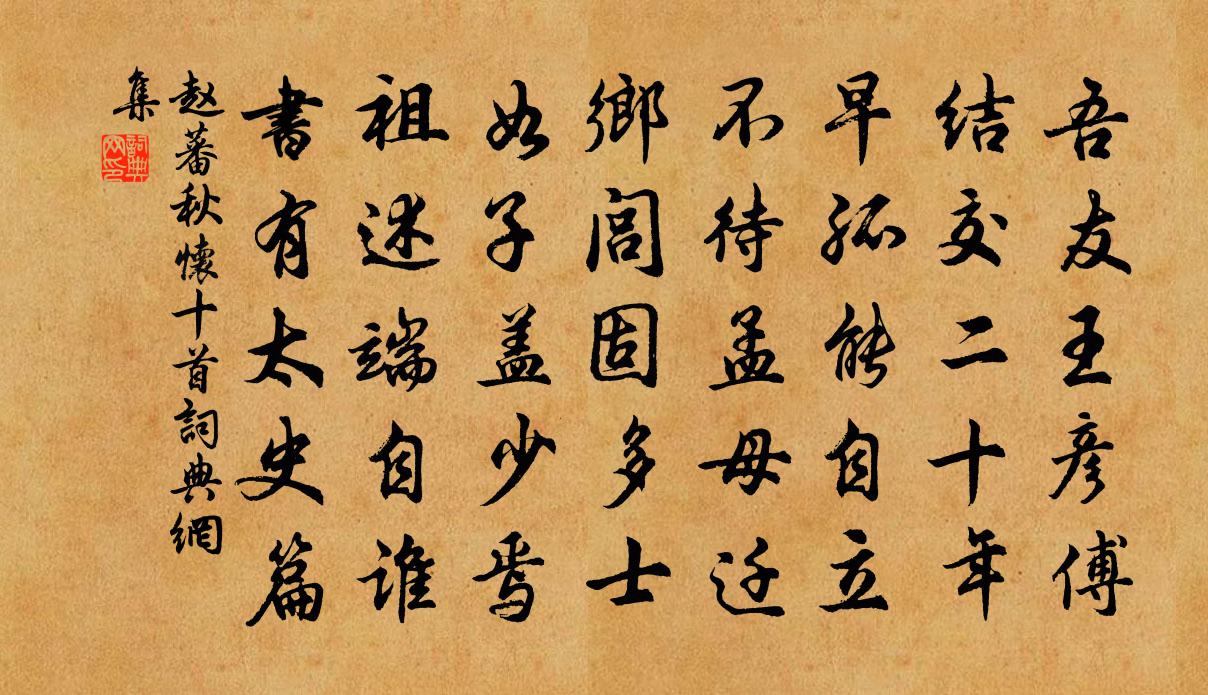 吾友王彥傅
結交二十年
早孤能自立
不待孟母迁
鄉閭固多士
如子盖少焉
祖述端自誰
書有太史篇
赵蕃秋懷十首詞典網
集
詞典
网印